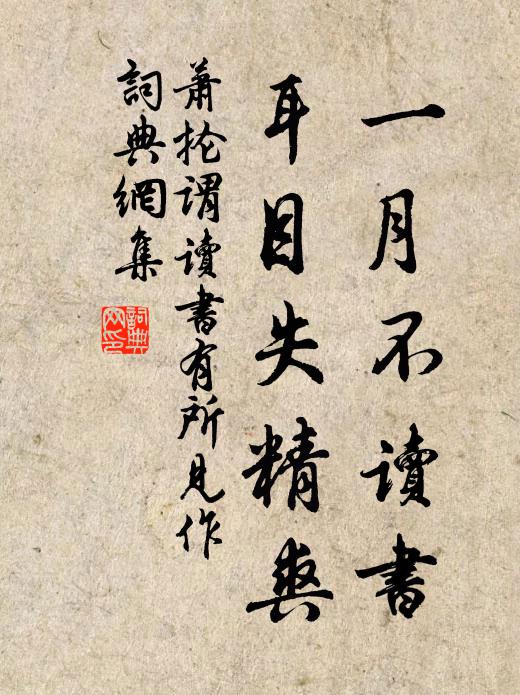 一月不讀書
耳目失精爽
蕭掄謂讀書有所見作
詞典網集
詞典網印